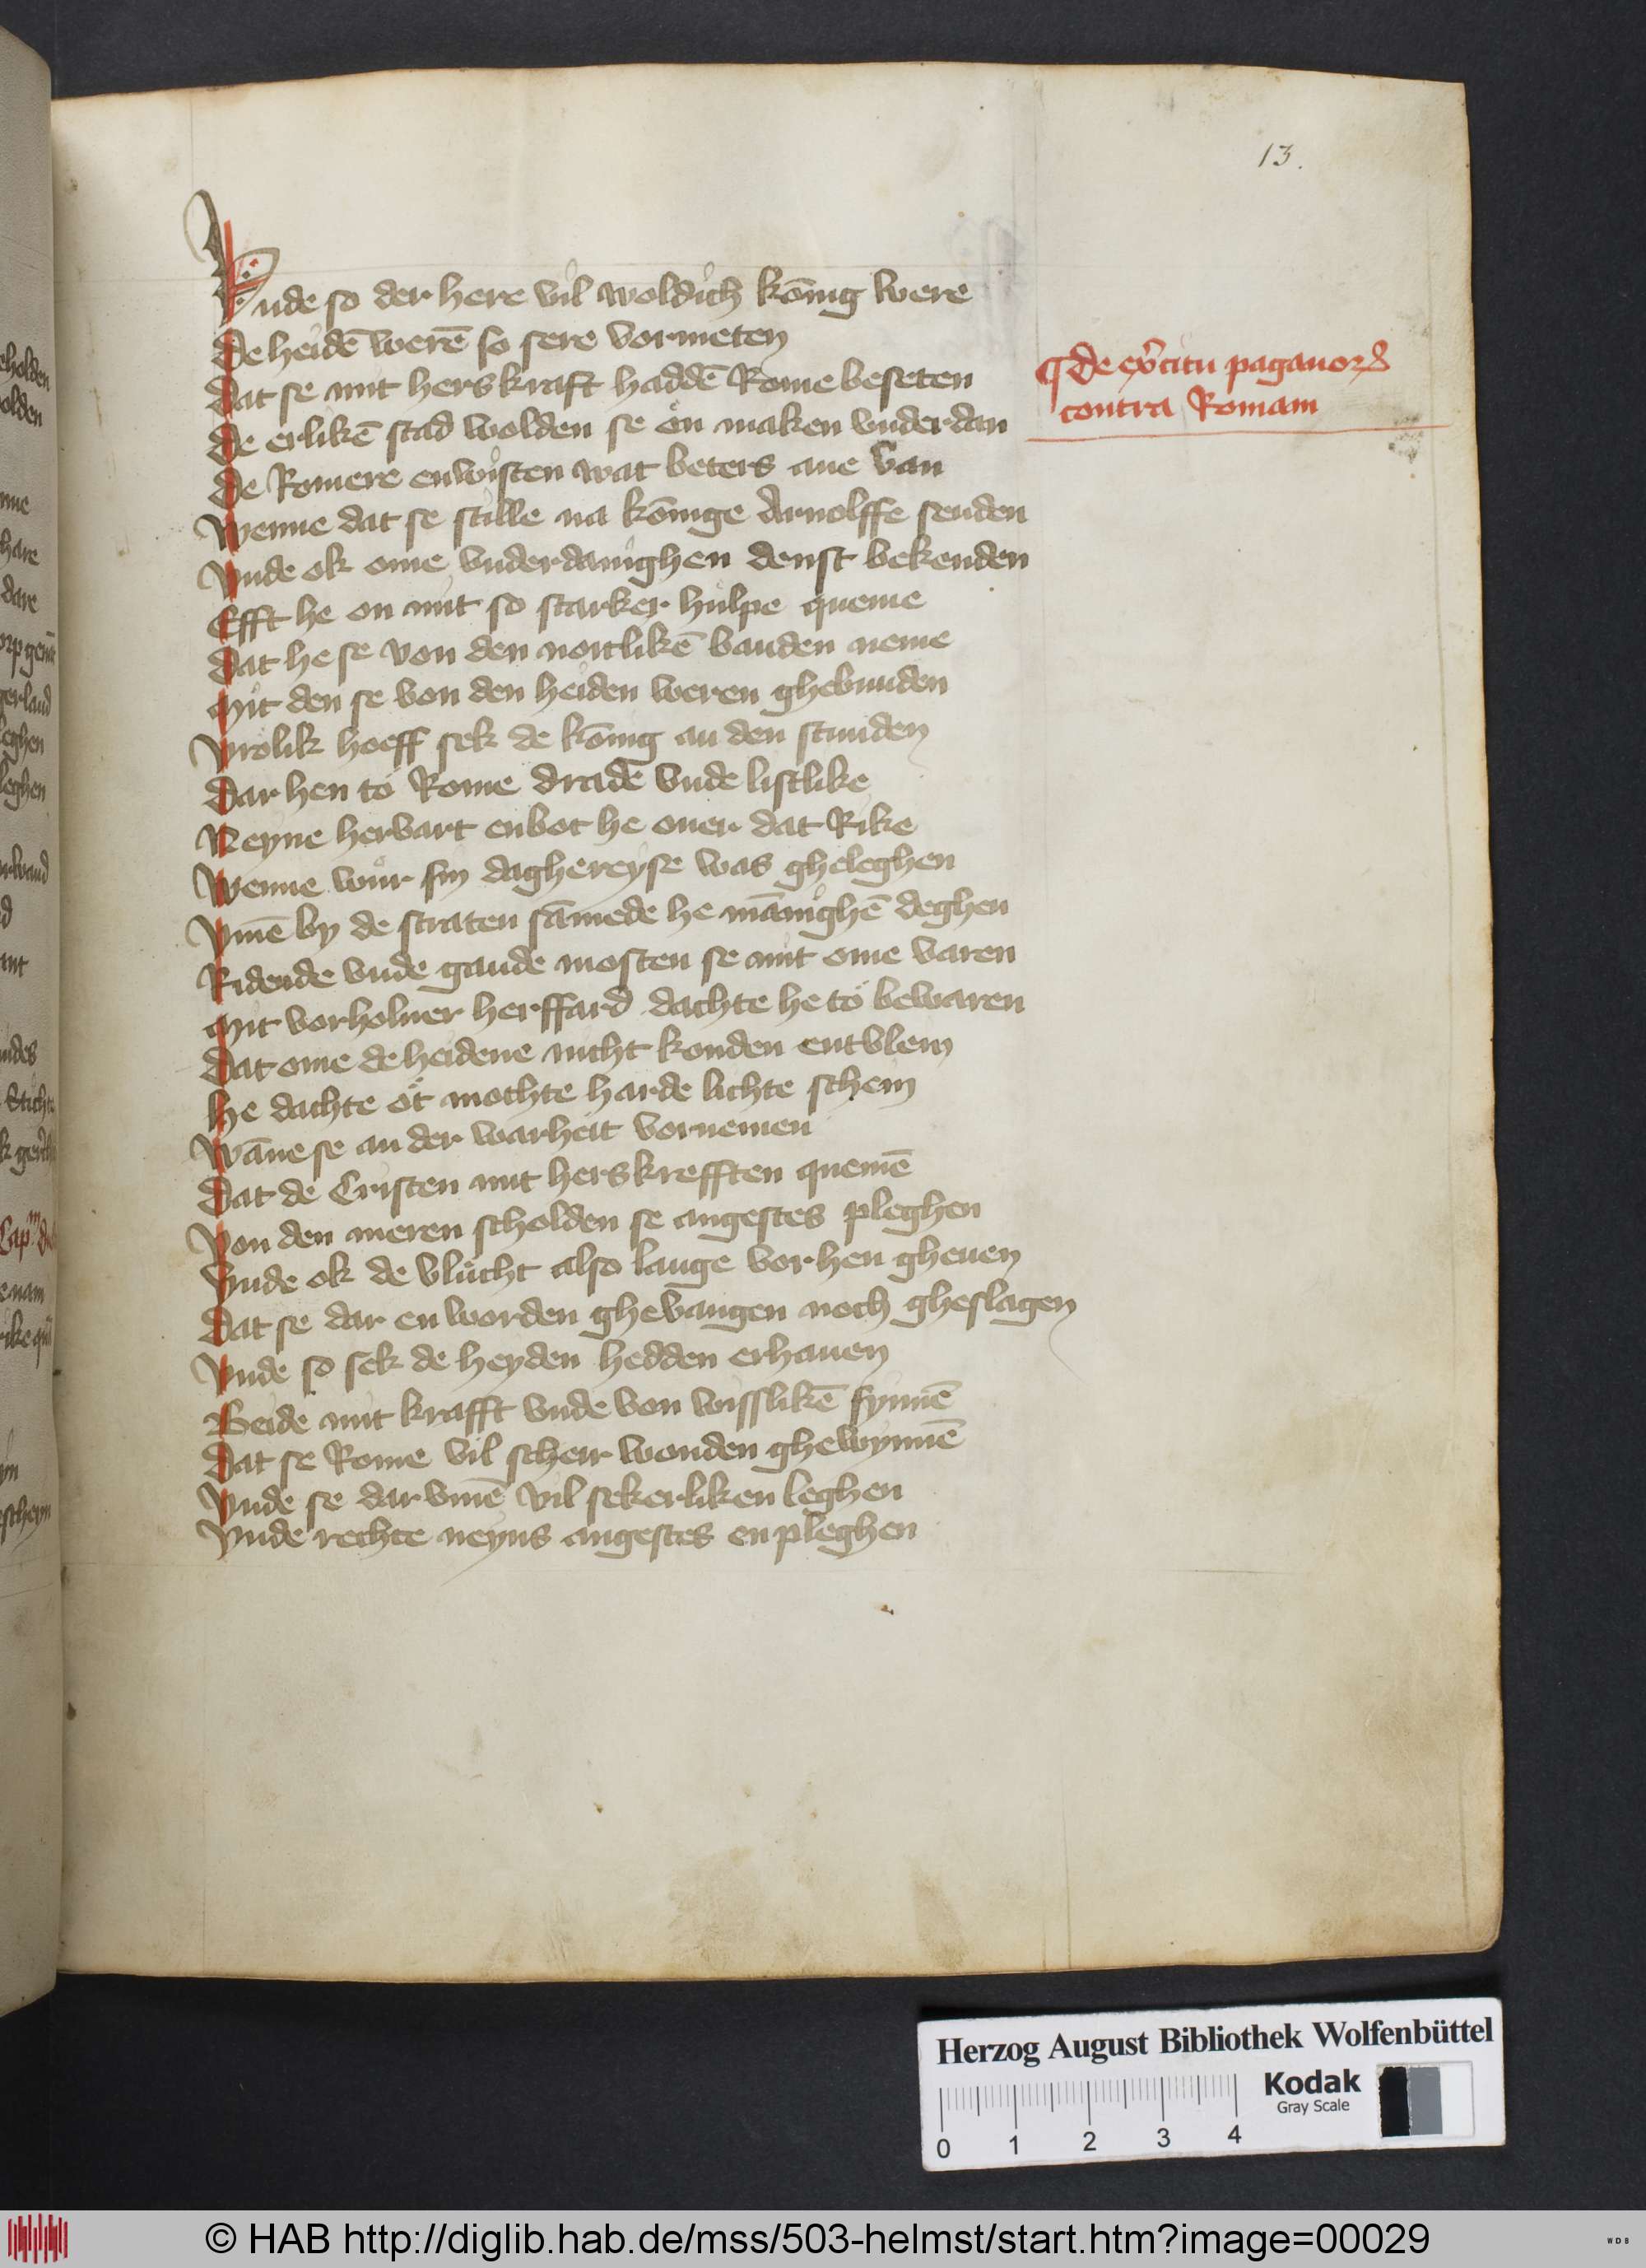 13.
Vnde so der here vil woldich kōnig were
De heidē werē so sere vormeten
Dat se mit herskraft haddē Rome beseten
De erlikē stad wolden se ön maken vnderdan
De Romere enwisten wat beters ane van
Wenne dat se stille na kōnige Arnolffe senden
Vnde ok ome vnderdanighen denst bekenden
Efft he on mit so starker hulpe queme
Dat he se von den noitlikē banden neme
Mit den se von den heiden weren ghebunden
Vrolik hoeff sek de kōnig an den stunden
Dar hen to Rome drade vnde listlike
Neyne hervart enbot he ouer dat Rike
Wenne wur sin daghereyse was gheleghen
Vmē by de straten sāmede he mānighē deghen
Ridende vnde gande mosten se mit ome varen
Mit vorholner herffard dachte he to bewaren
Dat ome de heidene nicht konden entvlein
He dachte öt mochte harde lichte schein
Wāne se an der warheit vornemen
Dat de Cristen mit herskrefften quemē
Von den meren scholden se angestes pleghen
Vnde ok de vlucht also lange vorhen gheuen
Dat se dar en worden ghevangen noch gheslagen
Vnde so sek de heyden hedden erhauen
Beide mit krafft vnde von wisslikē synnē
Dat se Rome vil scheir wonden ghewynnē
Vnde se dar vmē vil sekerliken leghen
Vnde rechte neyns angestes en pleghen
¶ De ex̄citu paganorꝝ
contra Romam
Herzog August Bibliothek Wolfenbüttel
Kodak
Gray Scale
0 1 2 3 4
© HAB http://diglib.hab.de/mss/503-helmst/start.htm?image=00029
WDB